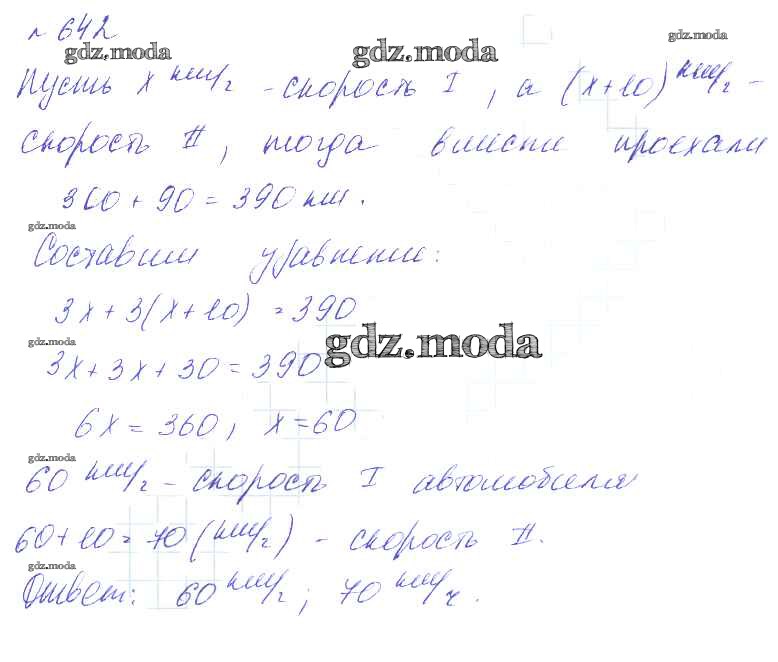 № 642
gdz.moda gdz.moda gdz.moda
Пусть x км/ч - скорость I, а (x+10) км/ч -
скорость II, тогда вместе проехали
300 + 90 = 390 км.
gdz.moda
Составим уравнение:
3x + 3(x+10) = 390
gdz.moda gdz.moda
3x + 3x + 30 = 390
6x = 360, x = 60
gdz.moda
60 км/ч - скорость I автомобиля
60 + 10 = 70 (км/ч) - скорость II.
gdz.moda
Ответ: 60 км/ч; 70 км/ч.